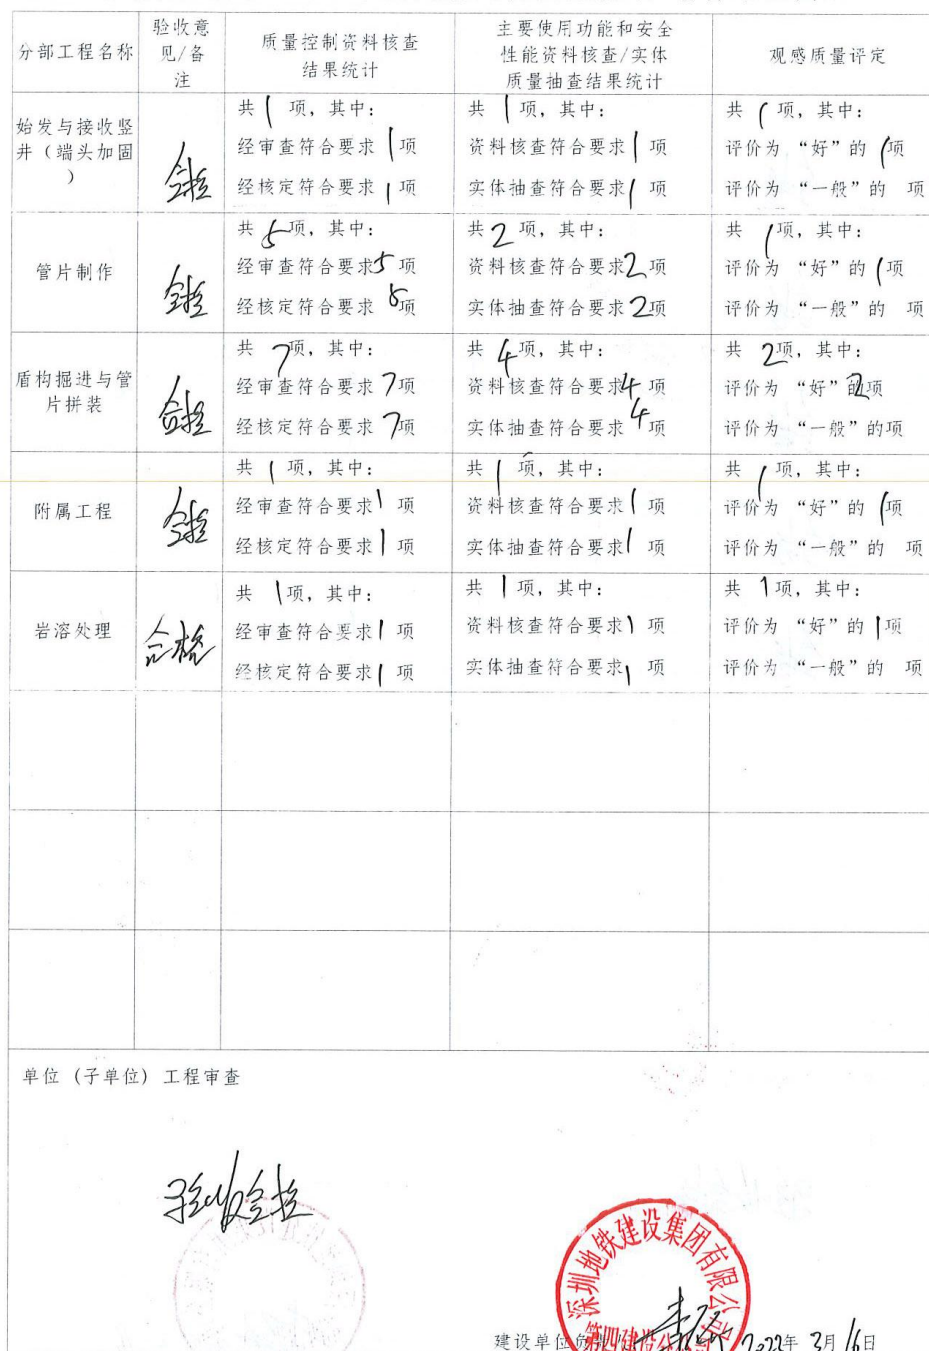 分部工程名称
验收意
见/备
注
质量控制资料核查
结果统计
主要使用功能和安全
性能资料核查/实体
质量抽查结果统计
观感质量评定
始发与接收竖
井（端头加固
）
合格
共 1 项，其中：
经审查符合要求 1 项
经核定符合要求 1 项
共 1 项，其中：
资料核查符合要求 1 项
实体抽查符合要求 1 项
共 1 项，其中：
评价为 “好”的 1 项
评价为 “一般”的 项
管片制作
合格
共 5 项，其中：
经审查符合要求 5 项
经核定符合要求 5 项
共 2 项，其中：
资料核查符合要求 2 项
实体抽查符合要求 2 项
共 1 项，其中：
评价为 “好”的 1 项
评价为 “一般”的 项
盾构掘进与管
片拼装
合格
共 7 项，其中：
经审查符合要求 7 项
经核定符合要求 7 项
共 4 项，其中：
资料核查符合要求 4 项
实体抽查符合要求 4 项
共 2 项，其中：
评价为 “好”的 2 项
评价为 “一般”的项
附属工程
合格
共 1 项，其中：
经审查符合要求 1 项
经核定符合要求 1 项
共 1 项，其中：
资料核查符合要求 1 项
实体抽查符合要求 1 项
共 1 项，其中：
评价为 “好”的 1 项
评价为 “一般”的 项
岩溶处理
合格
共 1 项，其中：
经审查符合要求 1 项
经核定符合要求 1 项
共 1 项，其中：
资料核查符合要求 1 项
实体抽查符合要求 1 项
共 1 项，其中：
评价为 “好”的 1 项
评价为 “一般”的 项
单位（子单位）工程审查
验收合格
深圳地铁建设集团有限公司
第四建设分
建设单位负 2022年 3月 16日